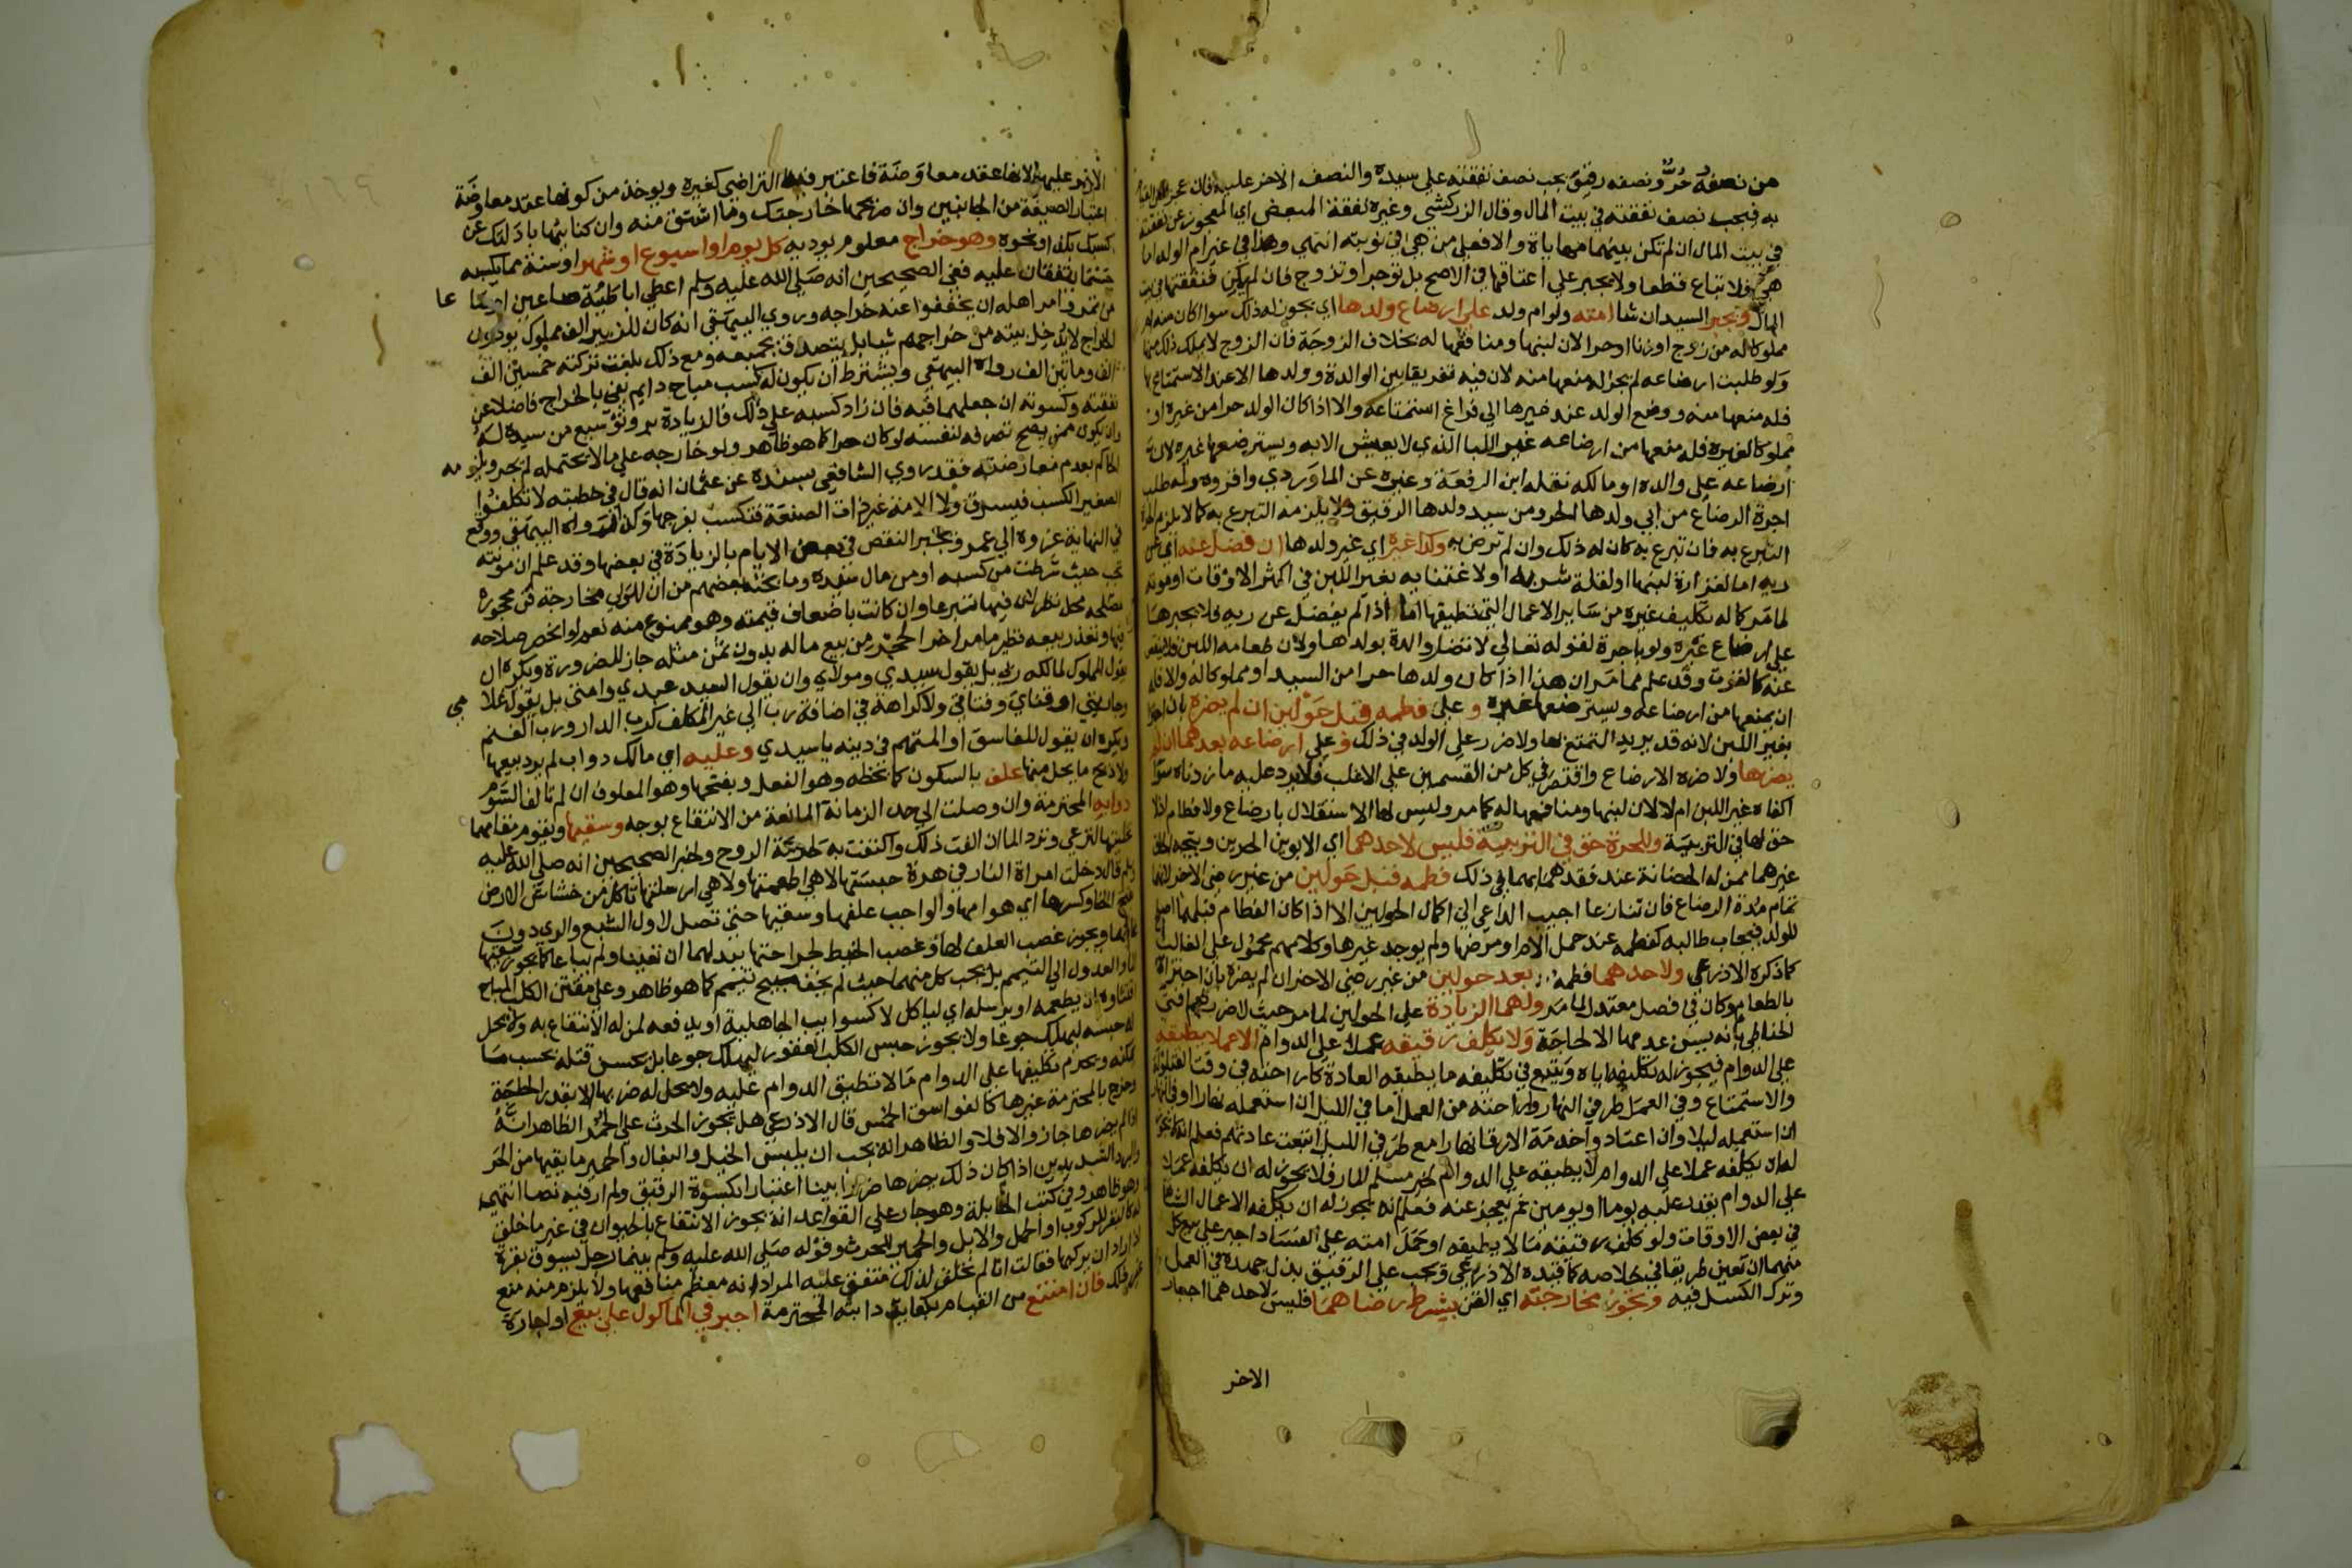 من نصفه حر ونصفه رقيق يجب نصف نفقته على سيده والنصف الاخر عليه فان عجز
به فيجب نصف نفقته في بيت المال وقال الزركشي وغيره نفقة المبعض اي المعجوز عن نفقته
في بيت المال ان لم تكن بينهما مهاياة والا فعلى من هي في نوبته انتهى وهذا في غير ام الولد اما
هي فلا تباع قطعا ولا يجبر على اعتاقها في الاصح بل تؤجر او تزوج فان لم يمكن فنفقتها في بيت
المال ويجبر السيد ان شا امته ولو ام ولد على ارضاع ولدها اي يجوز له ذلك سوا كان منه ام
مملوكا له من زوج او زنا او حرا لان لبنها ومنافعها له بخلاف الزوجة فان الزوج لا يملك ذلك منها
ولو طلبت ارضاعه لم يجز له منعها منه لان فيه تفريقا بين الوالدة وولدها الا عند الاستمتاع بها
فله منعها منه ووضع الولد عند غيرها الى فراغ استمتاعه والا اذا كان الولد حرا من غيره او
مملوكا لغيره فله منعها من ارضاعه غير اللبا الذي لا يعيش الا به ويسترضعها غيره لان
ارضاعه على والده او مالكه نقله ابن الرفعة وغيره عن الماوردي واقروه وله طلب
اجرة الرضاع من ابي ولدها الحر ومن سيد ولدها الرقيق ولا يلزمه التبرع به كما لا يلزم
التبرع به فان تبرع به كان له ذلك وان لم ترض به وكذا غيره اي غير ولدها ان فضل عنه اي عن
ريه اما لغزارة لبنها او لقلة شربه او لاغتنايه بغير اللبن في اكثر الاوقات او موته
لما مر كما له تكليف غيره من ساير الاعمال التي تطيقها اما اذا لم يفضل عن ريه فلا يجبرها
على ارضاع غيره ولو باجرة لقوله تعالى لا تضار والدة بولدها ولان طعامه اللبن فلا ينقص
عنه كالقوت وقد علم مما مر ان هذا اذا كان ولدها حرا من السيد او مملوكا له والا فله
ان يمنعها من ارضاعه ويسترضعها غيره وعلى فطمه قبل حولين ان لم يضره بان اجتزا
بغير اللبن لانه قد يريد التمتع بها ولا ضرر على الولد في ذلك وعلى ارضاعه بعدهما ان لم
يضرها ولا ضره الارضاع واقتصر في كل من القسمين على الاغلب فلا يرد عليه ما زدناه سوا
اكفاه غير اللبن ام لا لان لبنها ومنافعها له كما مر وليس لها الاستقلال بارضاع ولا فطام اذ لا
حق لها في التربية وللحرة حق في التربية فليس لاحدهما اي الابوين الحرين ويتجه الحاق
غيرهما ممن له الحضانة عند فقدهما بهما في ذلك فطمه قبل حولين من غير رضى الاخر لانهما
تمام مدة الرضاع فان تنازعا اجيب الداعي الى اكمال الحولين الا اذا كان الفطام قبلهما اصلح
للولد فيجاب طالبه كفطمه عند حمل الام او مرضها ولم يوجد غيرها وكلامهم محمول على الغالب
كما ذكره الاذرعي ولاحدهما فطمه بعد حولين من غير رضى الاخر ان لم يضره بان اجتزا
بالطعام وكان في فصل معتدل لما مر ولهما الزيادة على الحولين لما مر حيث لا ضرر نعم افتى
الحناطي بانه يسن عدمها الا لحاجة ولا يكلف رقيقه عملا على الدوام الا عملا يطيقه
على الدوام فيجوز له تكليفه اياه ويتبع في تكليفه ما يطيقه العادة كاراحته في وقت القيلولة
والاستمتاع وفي العمل طرفي النهار واراحته من العمل اما في الليل ان استعمله نهارا او في النهار
ان استعمله ليلا وان اعتادوا خدمة الارقا نهارا مع طرفي الليل اتبعت عادتهم فعلم انه لا يجوز
له ان يكلفه عملا على الدوام لا يطيقه على الدوام لخبر مسلم المار فلا يجوز له ان يكلفه عملا
على الدوام يقدر عليه يوما او يومين ثم يعجز عنه فعلم انه يجوز له ان يكلفه الاعمال الشاقة
في بعض الاوقات ولو كلف رقيقه ما لا يطيقه او حمل امته على الفساد اجبر على بيع كل
منهما ان تعين طريقا في خلاصه كما قيده الاذرعي ويجب على الرقيق بذل جهده في العمل
وترك الكسل فيه وتجوز مخارجته اي القن بشرط رضاهما فليس لاحدهما اجبار
الاخر
الاخر عليها لانها عقد معاوضة فاعتبر فيها التراضي كغيره ويوخذ من كونها عقد معاوضة
اعتبار الصيغة من الجانبين وان صريحها خارجتك وما اشتق منه وان كنايتها باذلتك عن
كسبك بكذا ونحوه وهو خراج معلوم يوديه كل يوم او اسبوع او شهر او سنة مما يكسبه
حسبما يتفقان عليه ففي الصحيحين انه صلى الله عليه وسلم اعطى ابا طيبة صاعين او صاعا
من تمر وامر اهله ان يخففوا عنه خراجه وروى البيهقي انه كان للزبير الف مملوك يودون
الخراج لا يدخل بيته من خراجهم شيا بل يتصدق بجميعه ومع ذلك بلغت تركته خمسين الف
الف ومايتين الف رواه البيهقي ويشترط ان يكون له كسب مباح دايم يفي بالخراج فاضلا عن
نفقته وكسوته ان جعلهما فيه فان زاد كسبه على ذلك فالزيادة بر وتوسيع من سيده له
وان يكون ممن يصح تصرفه لنفسه لو كان حرا كما هو ظاهر ولو خارجه على ما لا يحتمله لم يجز ويلزمه
الحاكم بعدم معارضته فقد روى الشافعي بسنده عن عثمان انه قال في خطبته لا تكلفوا
الصغير الكسب فيسرق ولا الامة غير ذات الصنعة فتكسب بفرجها وكذا رواه البيهقي ووقع
في النهاية عزوه الى عمر ويجبر النقص في بعض الايام بالزيادة في بعضها وقد علم ان مونته
تجب حيث شرطت من كسبه او من مال سيده وما بحثه بعضهم من ان للولي مخارجة قن محجوره
لمصلحة محل نظر لان فيها تبرعا وان كانت باضعاف قيمته وهو ممنوع منه نعم لو انحصر صلاحه
فيها وتعذر بيعه نظير ما مر اخر الحجر من بيع ماله بدون ثمن مثله جاز للضرورة ويكره ان
يقول المملوك لمالكه ربي بل يقول سيدي ومولاي وان يقول السيد عبدي وامتي بل يقول غلامي
وجاريتي او فتاي وفتاتي ولا كراهة في اضافة رب الى غير المكلف كرب الدار ورب الغنم
ويكره ان يقول للفاسق او المتهم في دينه يا سيدي وعليه اي مالك دواب لم يرد بيعها
ولا ذبح ما يحل منها علف بالسكون كما بخطه وهو الفعل وبفتحها وهو المعلوف ان لم تالف السوم
دوابه المحترمة وان وصلت الى حد الزمانة المانعة من الانتفاع بوجه وسقيها ويقوم مقامهما
تخليتها لترعى وترد الما ان الفت ذلك واكتفت به لحرمة الروح ولخبر الصحيحين انه صلى الله عليه
وسلم قال دخلت امراة النار في هرة حبستها لا هي اطعمتها ولا هي ارسلتها تاكل من خشاش الارض
بفتح الخا وكسرها اي هوامها والواجب علفها وسقيها حتى تصل لاول الشبع والري دون
غايتهما ويجوز غصب العلف لها وغصب الخيط لجراحتها ببدلهما ان تعينا ولم يباعا كما يجوز سقيها
الما والعدول الى التيمم بل يجب كل منهما حيث لم يخف مبيح تيمم كما هو ظاهر وعلى مقتني الكلب المباح
اقتناوه ان يطعمه او يرسله اي لياكل لا كسوايب الجاهلية او يدفعه لمن له الانتفاع به ولا يحل
له حبسه ليهلك جوعا ولا يجوز حبس الكلب العقور ليهلك جوعا بل يحسن قتله بحسب ما
يمكنه ويحرم تكليفها على الدوام ما لا تطيق الدوام عليه ولا يحل له ضربها الا بقدر الحاجة
وخرج بالمحترمة غيرها كالفواسق الخمس قال الاذرعي هل يجوز الحرث على الحمر الظاهر انه
ان لم يضرها جاز والا فلا والظاهر انه يجب ان يلبس الخيل والبغال والحمير ما يقيها من الحر
والبرد الشديدين اذا كان ذلك يضرها ضررا بينا اعتبارا بكسوة الرقيق ولم ار فيه نصا انتهى
وهو ظاهر وفي كتب الحنابلة وهو جار على القواعد انه يجوز الانتفاع بالحيوان في غير ما خلق
له كالبقر للركوب او الحمل والابل والحمير للحرث وقوله صلى الله عليه وسلم بينما رجل يسوق بقرة
اذ اراد ان يركبها فقالت انا لم نخلق لذلك متفق عليه المراد انه معظم منافعها ولا يلزم منه منع
غير ذلك فان امتنع من القيام بكفاية دابته المحترمة اجبر في الماكول على بيع او اجارة